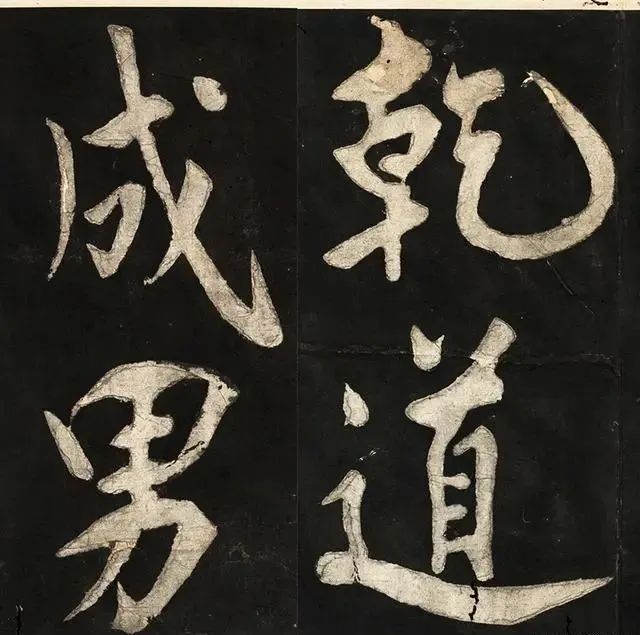 乾道
成男